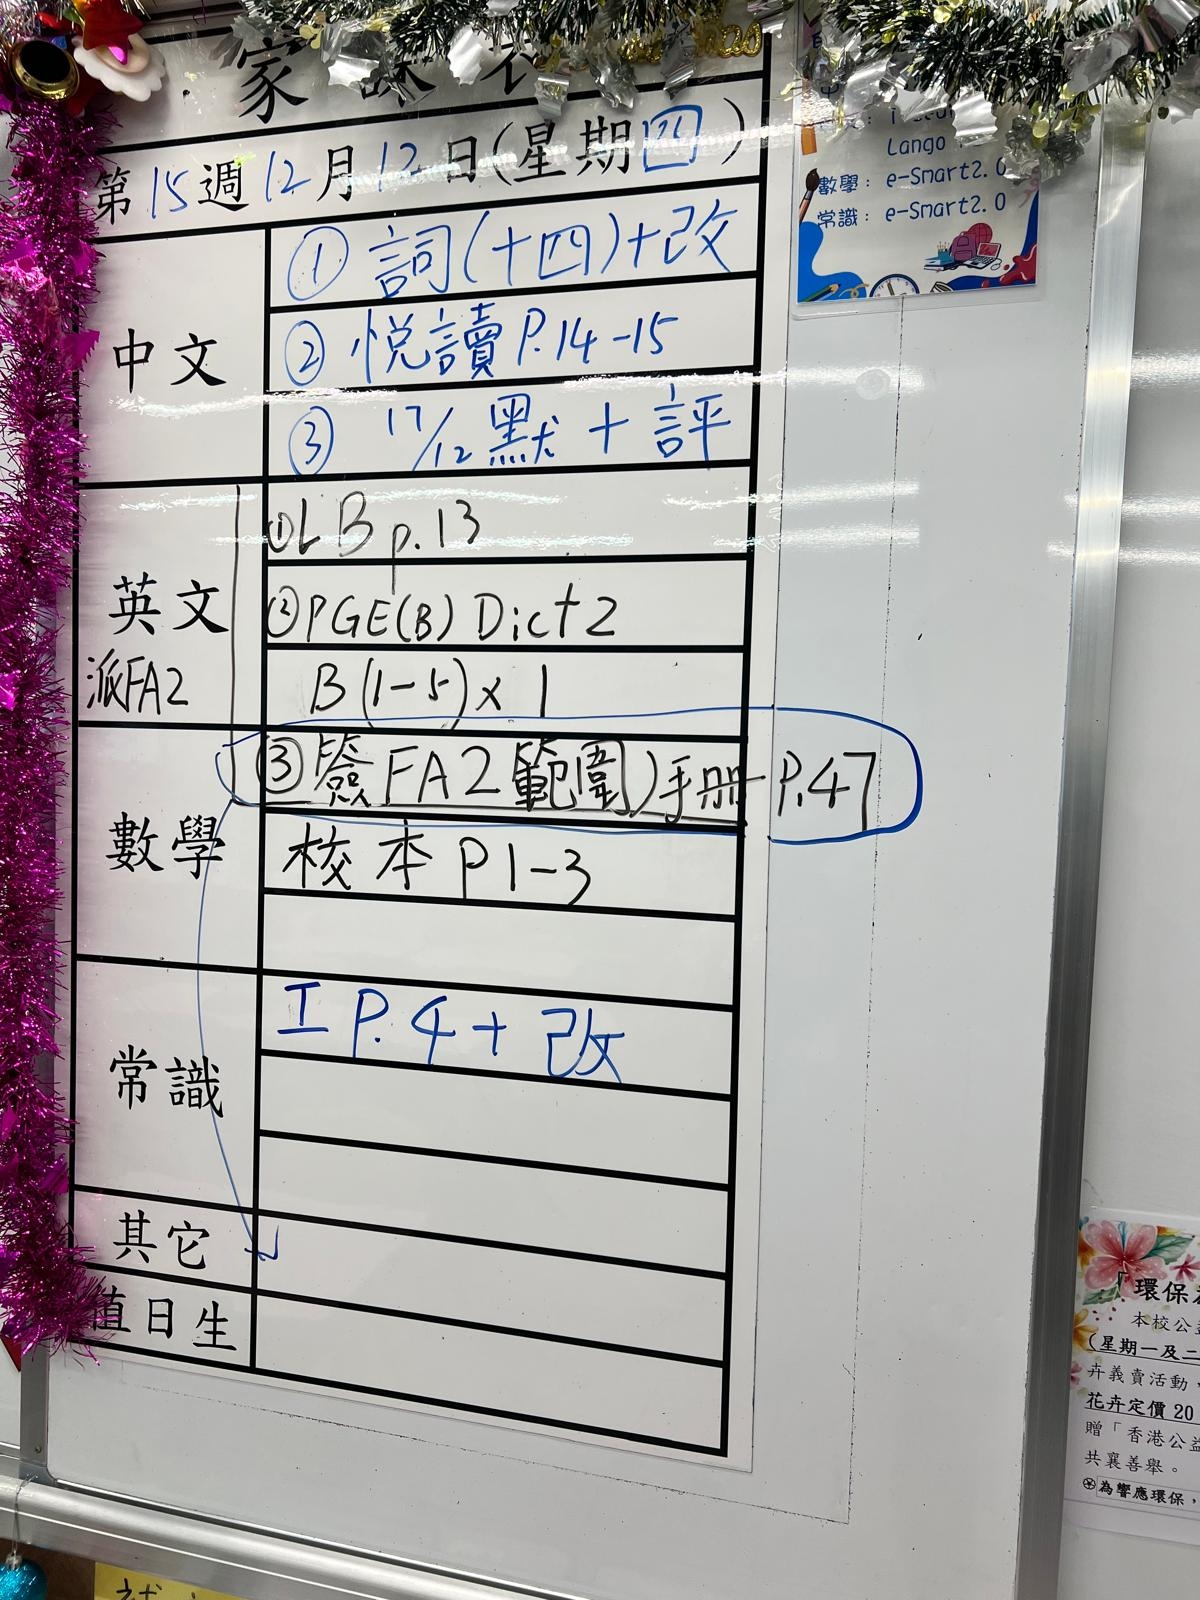 家課表
第15週12月12日(星期四)
中文
① 詞(十四)+改
② 悅讀 P.14-15
③ 17/12 默 + 評
英文
派FA2
①LB p.13
②PGE(B) Dict 2
B(1-5)x1
數學
③簽FA2範圍)手冊 P.47
校本 P1-3
常識
工 P.4 + 改
其它
值日生
Lango
數學: e-Smart2.0
常識: e-Smart2.0
「環保
本校公
(星期一及二
卉義賣活動
花卉定價 20
贈「香港公益
共襄善舉。
為響應環保,